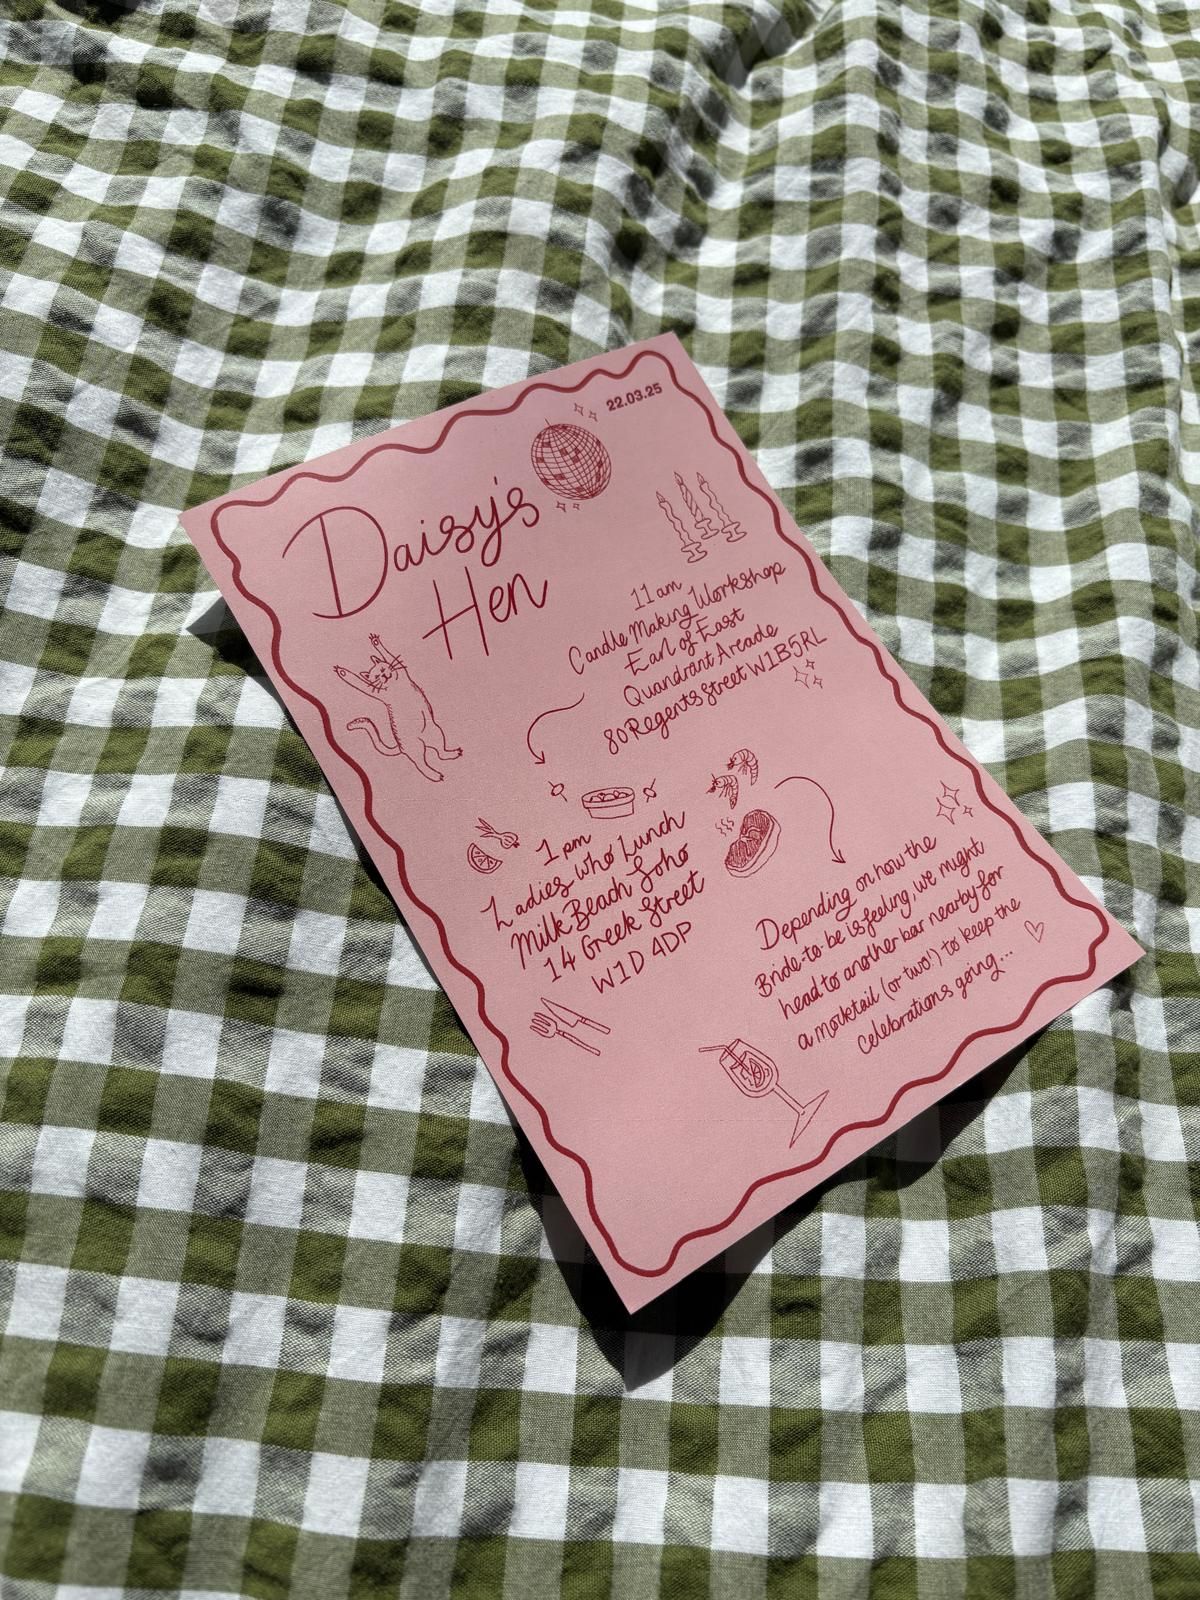 22.03.25
Daisy's
Hen
11am
Candle Making Workshop
Earl of East
Quandrant Arcade
80 Regents Street W1B5RL
1pm
Ladies who Lunch
Milk Beach Soho
14 Greek Street
W1D 4DP
Depending on how the
Bride-to-be is feeling, we might
head to another bar nearby for
a mocktail (or two!) to keep the
celebrations going...